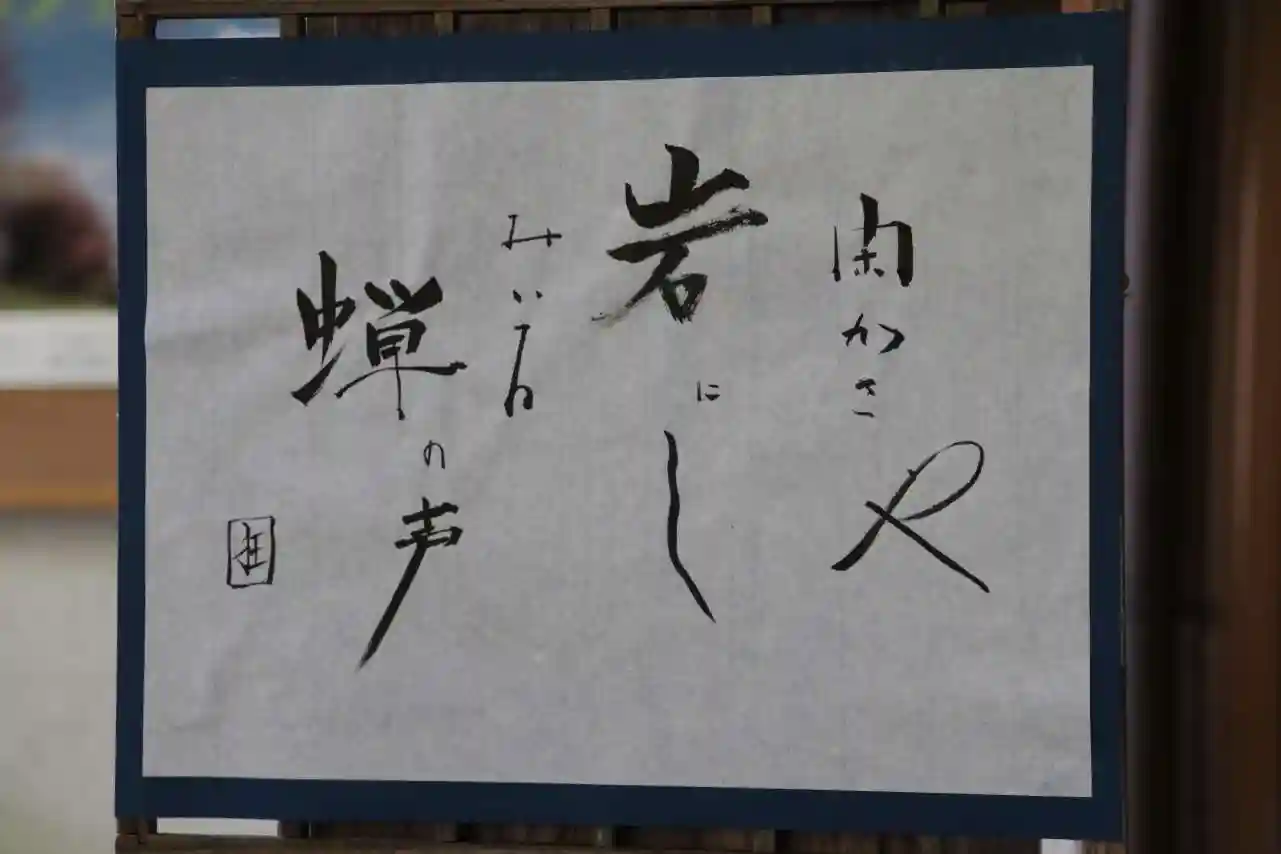 閑かさや
岩にし
みいる
蝉の声